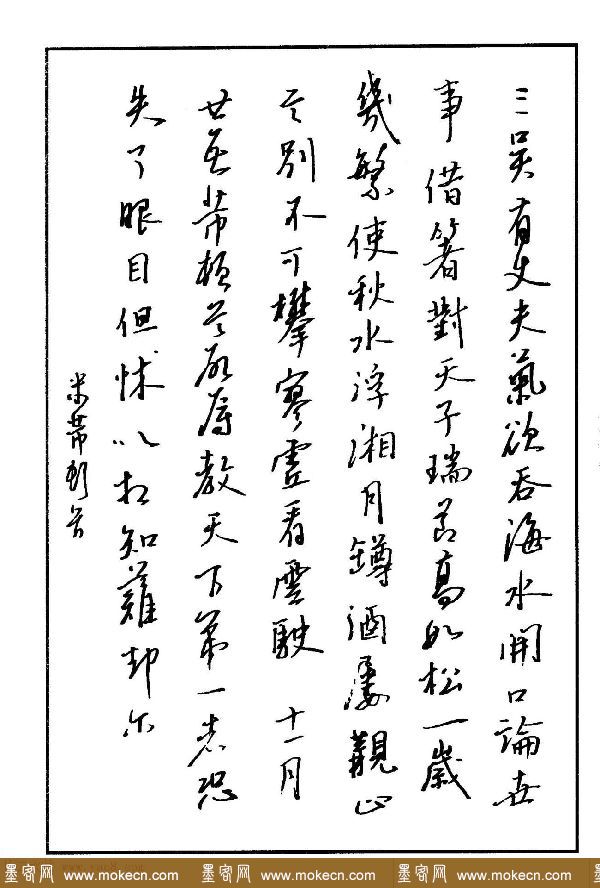 三吴有丈夫氣欲吞海水開口論世
事借箸對天子瑞節高如松一歲
幾繁使秋水浮湘月罇酒屢覯止
言別不可攀寥虚看雲駛 十一月
廿五芾頓首啓辱教天下第一者恐
失了眼目但怵以相知難却尔
米芾
墨客网 www.mokecn.com 墨客网 www.mokecn.com 墨客网 www.mokecn.com